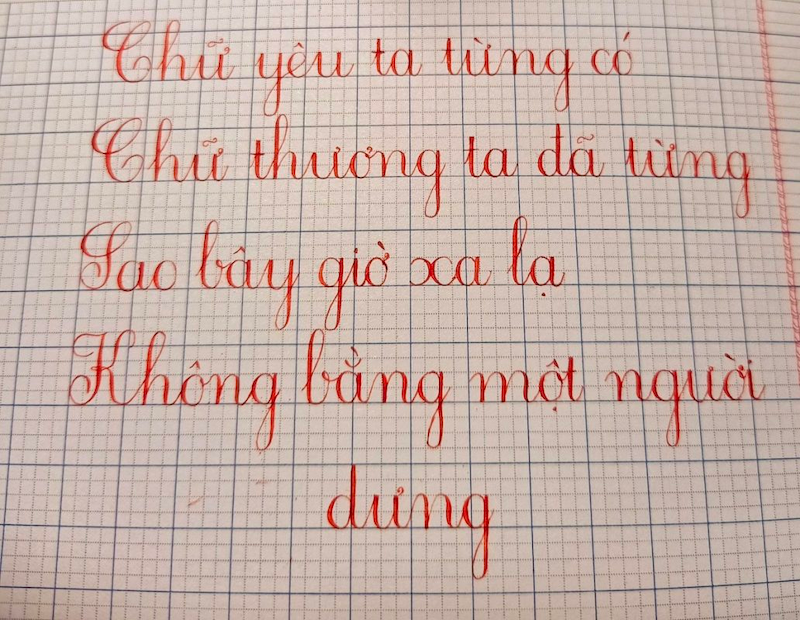 Chữ yêu ta từng có
Chữ thương ta đã từng
Sao bây giờ xa lạ
Không bằng một người
dưng